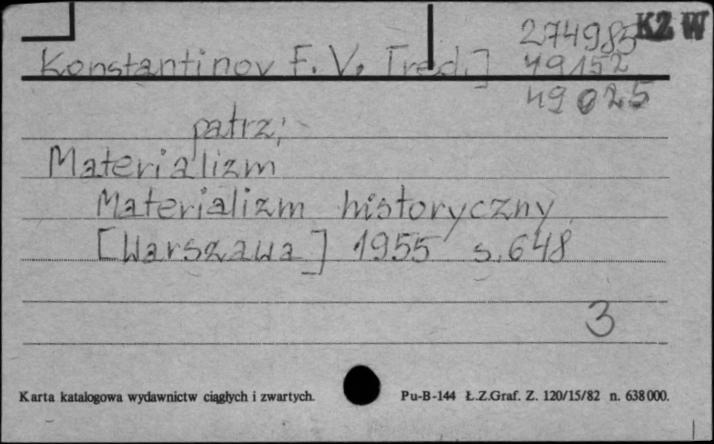 274985 KZ W
Konstantinov F. V. [red.] 49152
49025
patrz:
Materializm
Materializm historyczny
[Warszawa] 1955 s. 648
3
Karta katalogowa wydawnictw ciągłych i zwartych. Pu-B-144 Ł.Z.Graf. Z. 120/15/82 n. 638000.